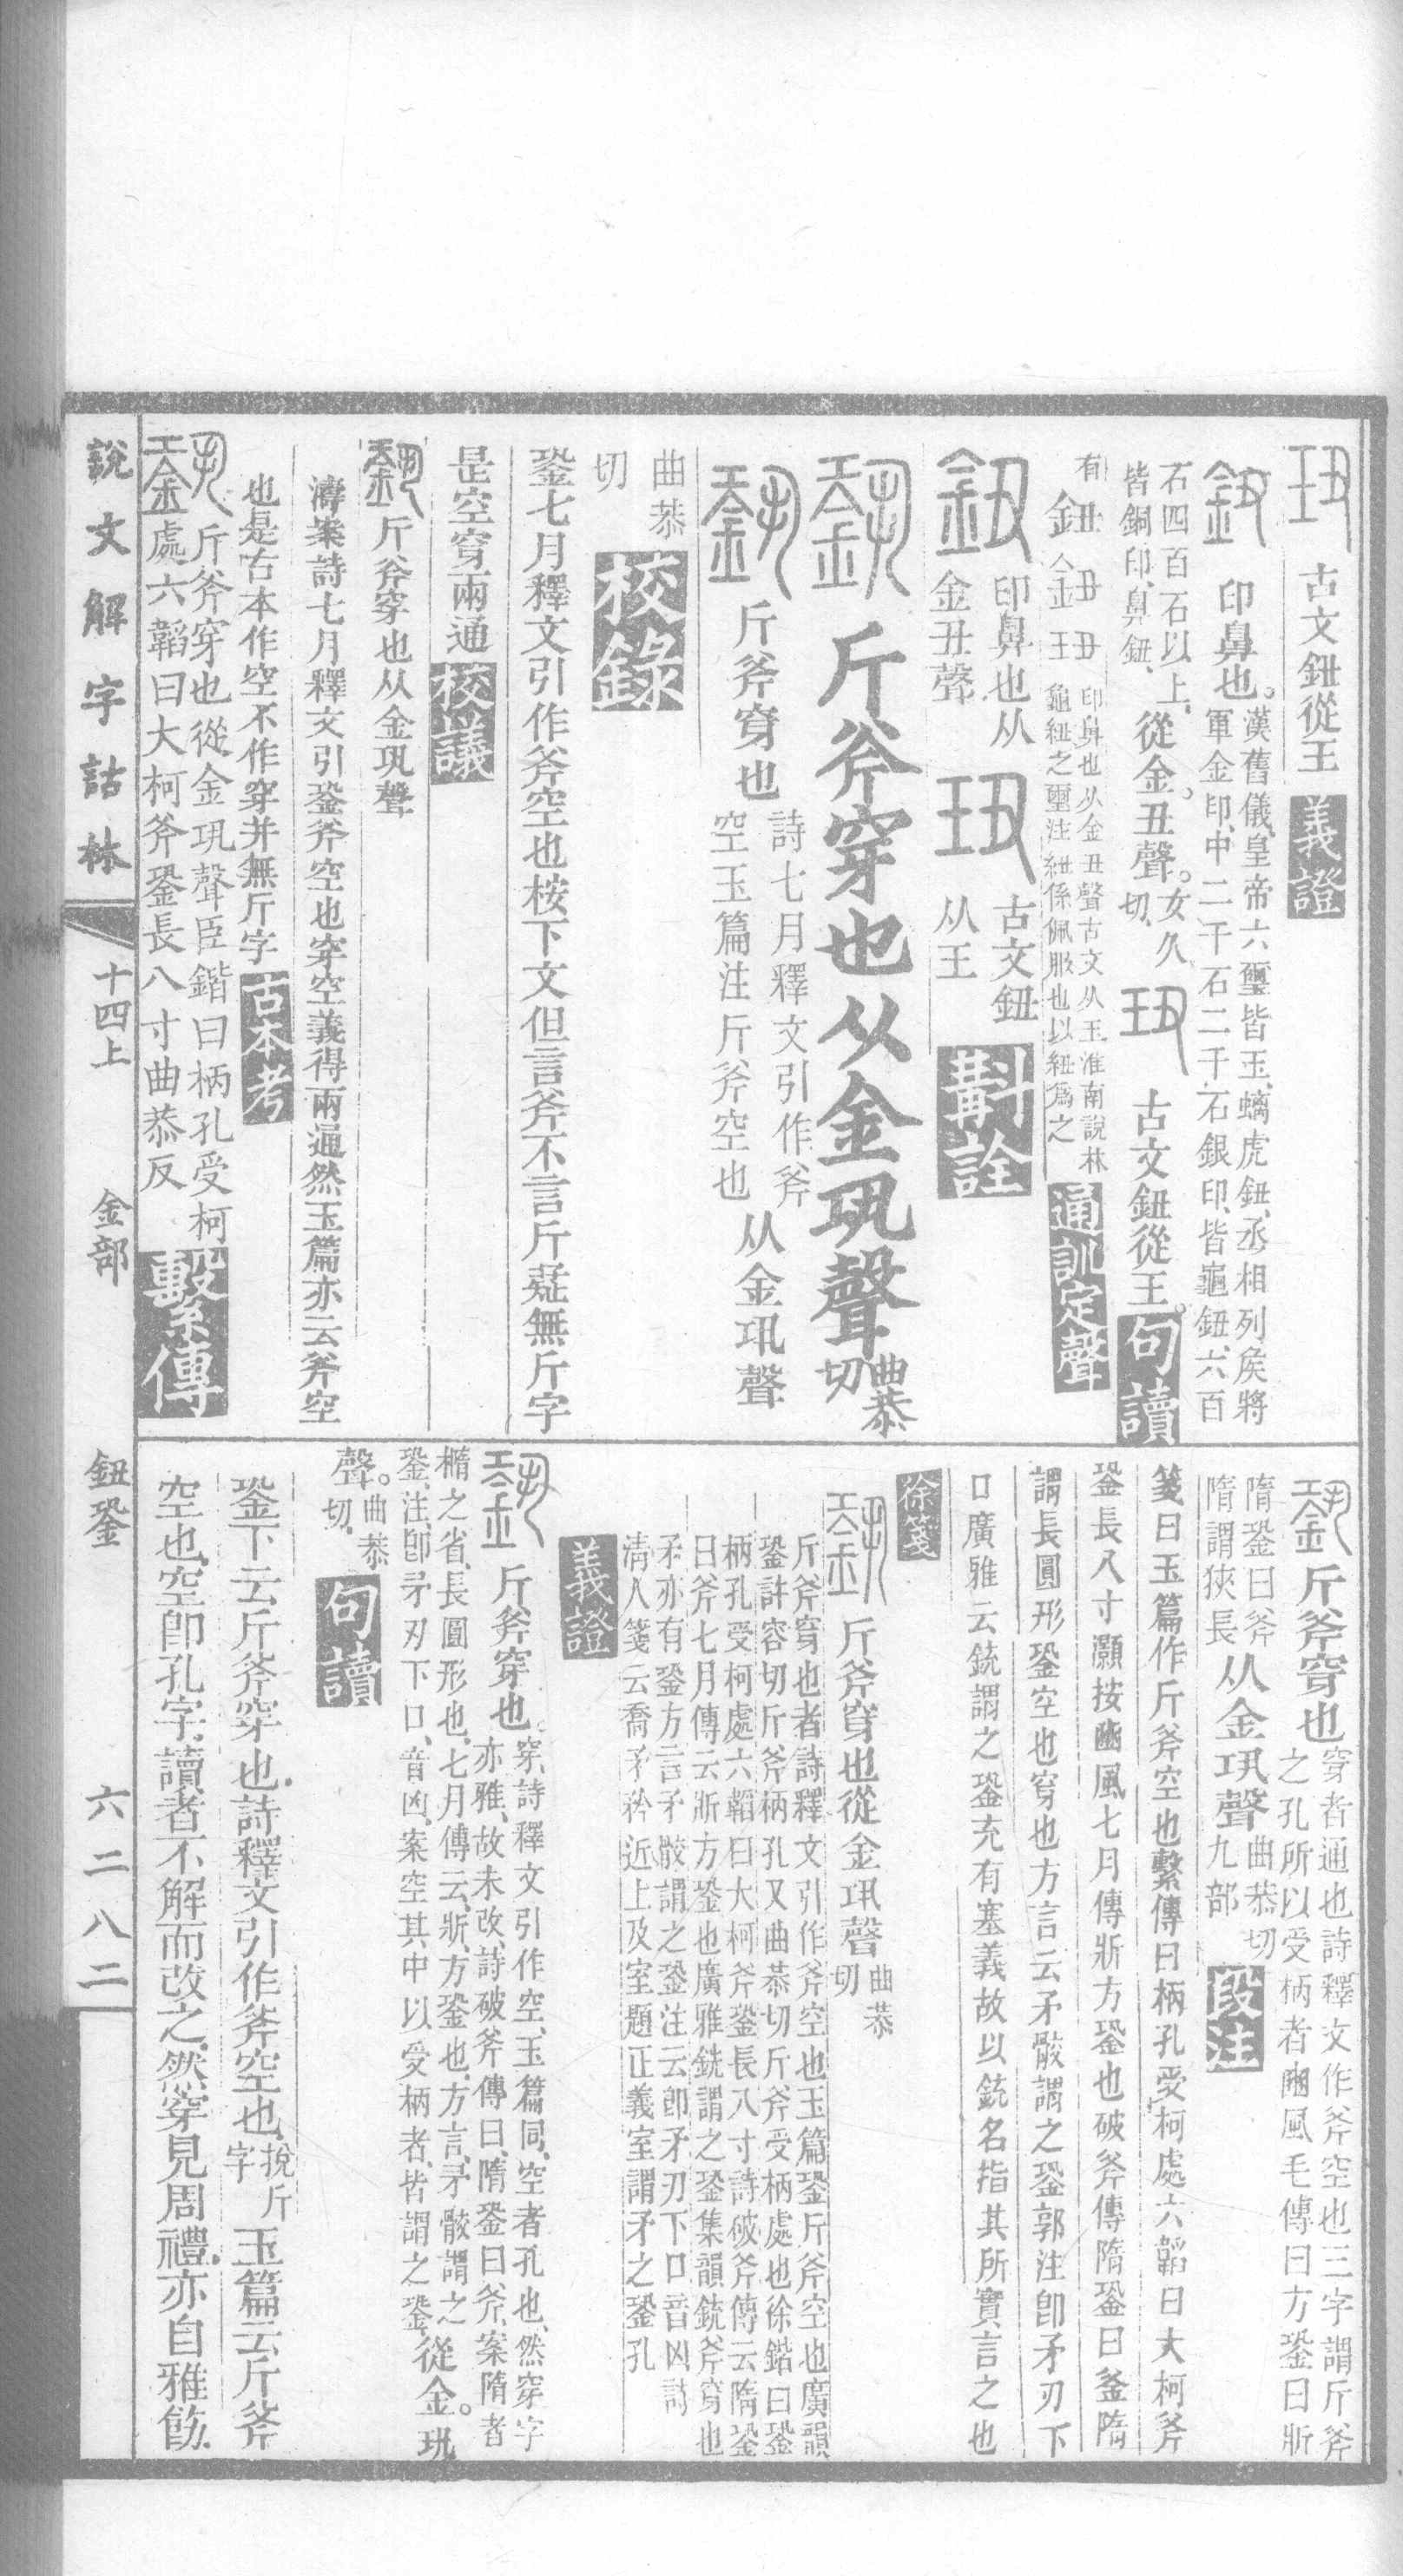 古文鈕從玉 義證
印鼻也。漢舊儀、皇帝六璽皆玉、螭虎鈕、丞相列侯將
軍金印、中二千石二千石銀印、皆龜鈕、六百
石四百石以上、
皆銅印、鼻鈕、從金。丑聲。女久切、
古文鈕從王。句讀
印鼻也从金丑聲古文从玉淮南說林
龜紐之璽注紐係佩服也以紐爲之 通訓定聲
印鼻也从
金丑聲
古文鈕
从王 斠詮
斤斧穿也从金巩聲曲恭切
斤斧穿也詩七月釋文引作斧
空玉篇注斤斧空也从金巩聲
曲恭
切 校錄
銎七月釋文引作斧空也桉下文但言斧不言斤疑無斤字
是空穿兩通 校議
斤斧穿也从金巩聲
濤案詩七月釋文引銎斧空也穿空義得兩通然玉篇亦云斧空
也是古本作空不作穿并無斤字 古本考
斤斧穿也從金巩聲臣鍇曰柄孔受柯
處六韜曰大柯斧銎長八寸曲恭反 繫傳
斤斧穿也穿者通也詩釋文作斧空也三字謂斤斧
之孔所以受柄者豳風毛傳曰方銎曰斨
隋銎曰斧
隋謂狹長从金巩聲曲恭切
九部 段注
箋曰玉篇作斤斧空也繫傳曰柄孔受柯處六韜曰大柯斧
銎長八寸灝按豳風七月傳斨方銎也破斧傳隋銎曰釜隋
謂長圓形銎空也穿也方言云矛骹謂之銎郭注卽矛刃下
口廣雅云銃謂之銎充有塞義故以銃名指其所實言之也
徐箋
斤斧穿也從金巩聲曲恭
切
斤斧穿也者詩釋文引作斧空也玉篇銎斤斧空也廣韻
銎許容切斤斧柄孔又曲恭切斤斧受柄處也徐鍇曰銎
柄孔受柯處六韜曰大柯斧銎長八寸詩破斧傳云隋銎
曰斧七月傳云斨方銎也廣雅銃謂之銎集韻銃斧穿也
矛亦有銎方言矛骹謂之銎注云卽矛刃下口音凶詩
淸人箋云喬矛矜近上及室題正義室謂矛之銎孔
義證
斤斧穿也。穿、詩釋文引作空、玉篇同、空者孔也、然穿字
亦雅、故未改、詩破斧傳曰、隋銎曰斧、案隋者
橢之省、長圓形也、七月傳云、斨、方銎也、方言、矛骹謂之
銎、注、卽矛刃下口、音凶、案空其中以受柄者、皆謂之銎、從金。巩
聲。曲恭
切、 句讀
銎下云斤斧穿也、詩釋文引作斧空也、挩斤
字玉篇云斤斧
空也、空卽孔字、讀者不解而改之、然穿見周禮、亦自雅飭、
說文解字詁林 十四上 金部 鈕銎 六二八二